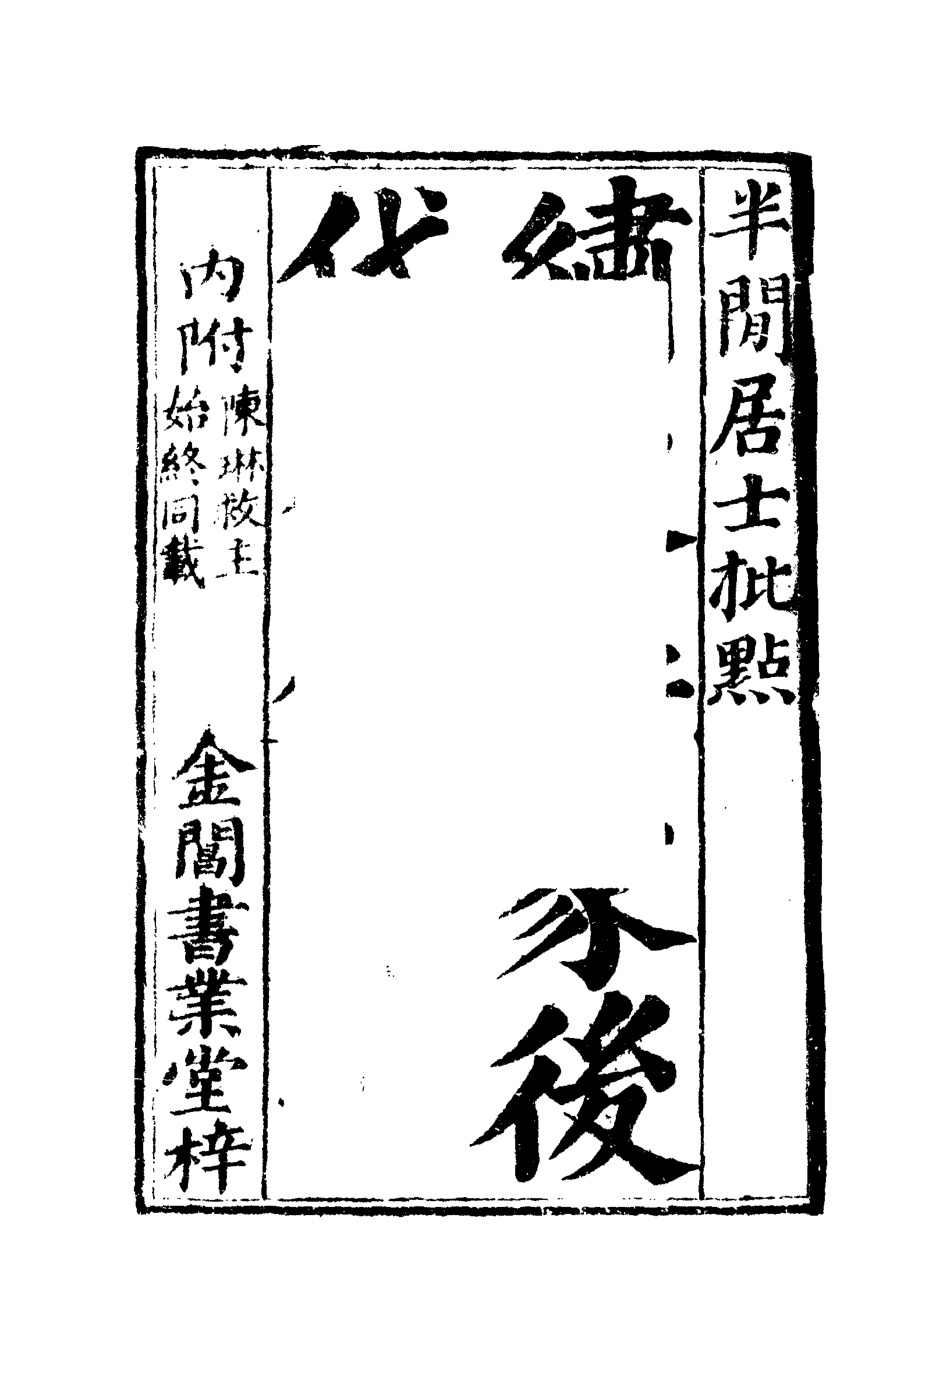 半閒居士批點
繡
後
代
內附
陳琳救主
始終同載
金閶書業堂梓